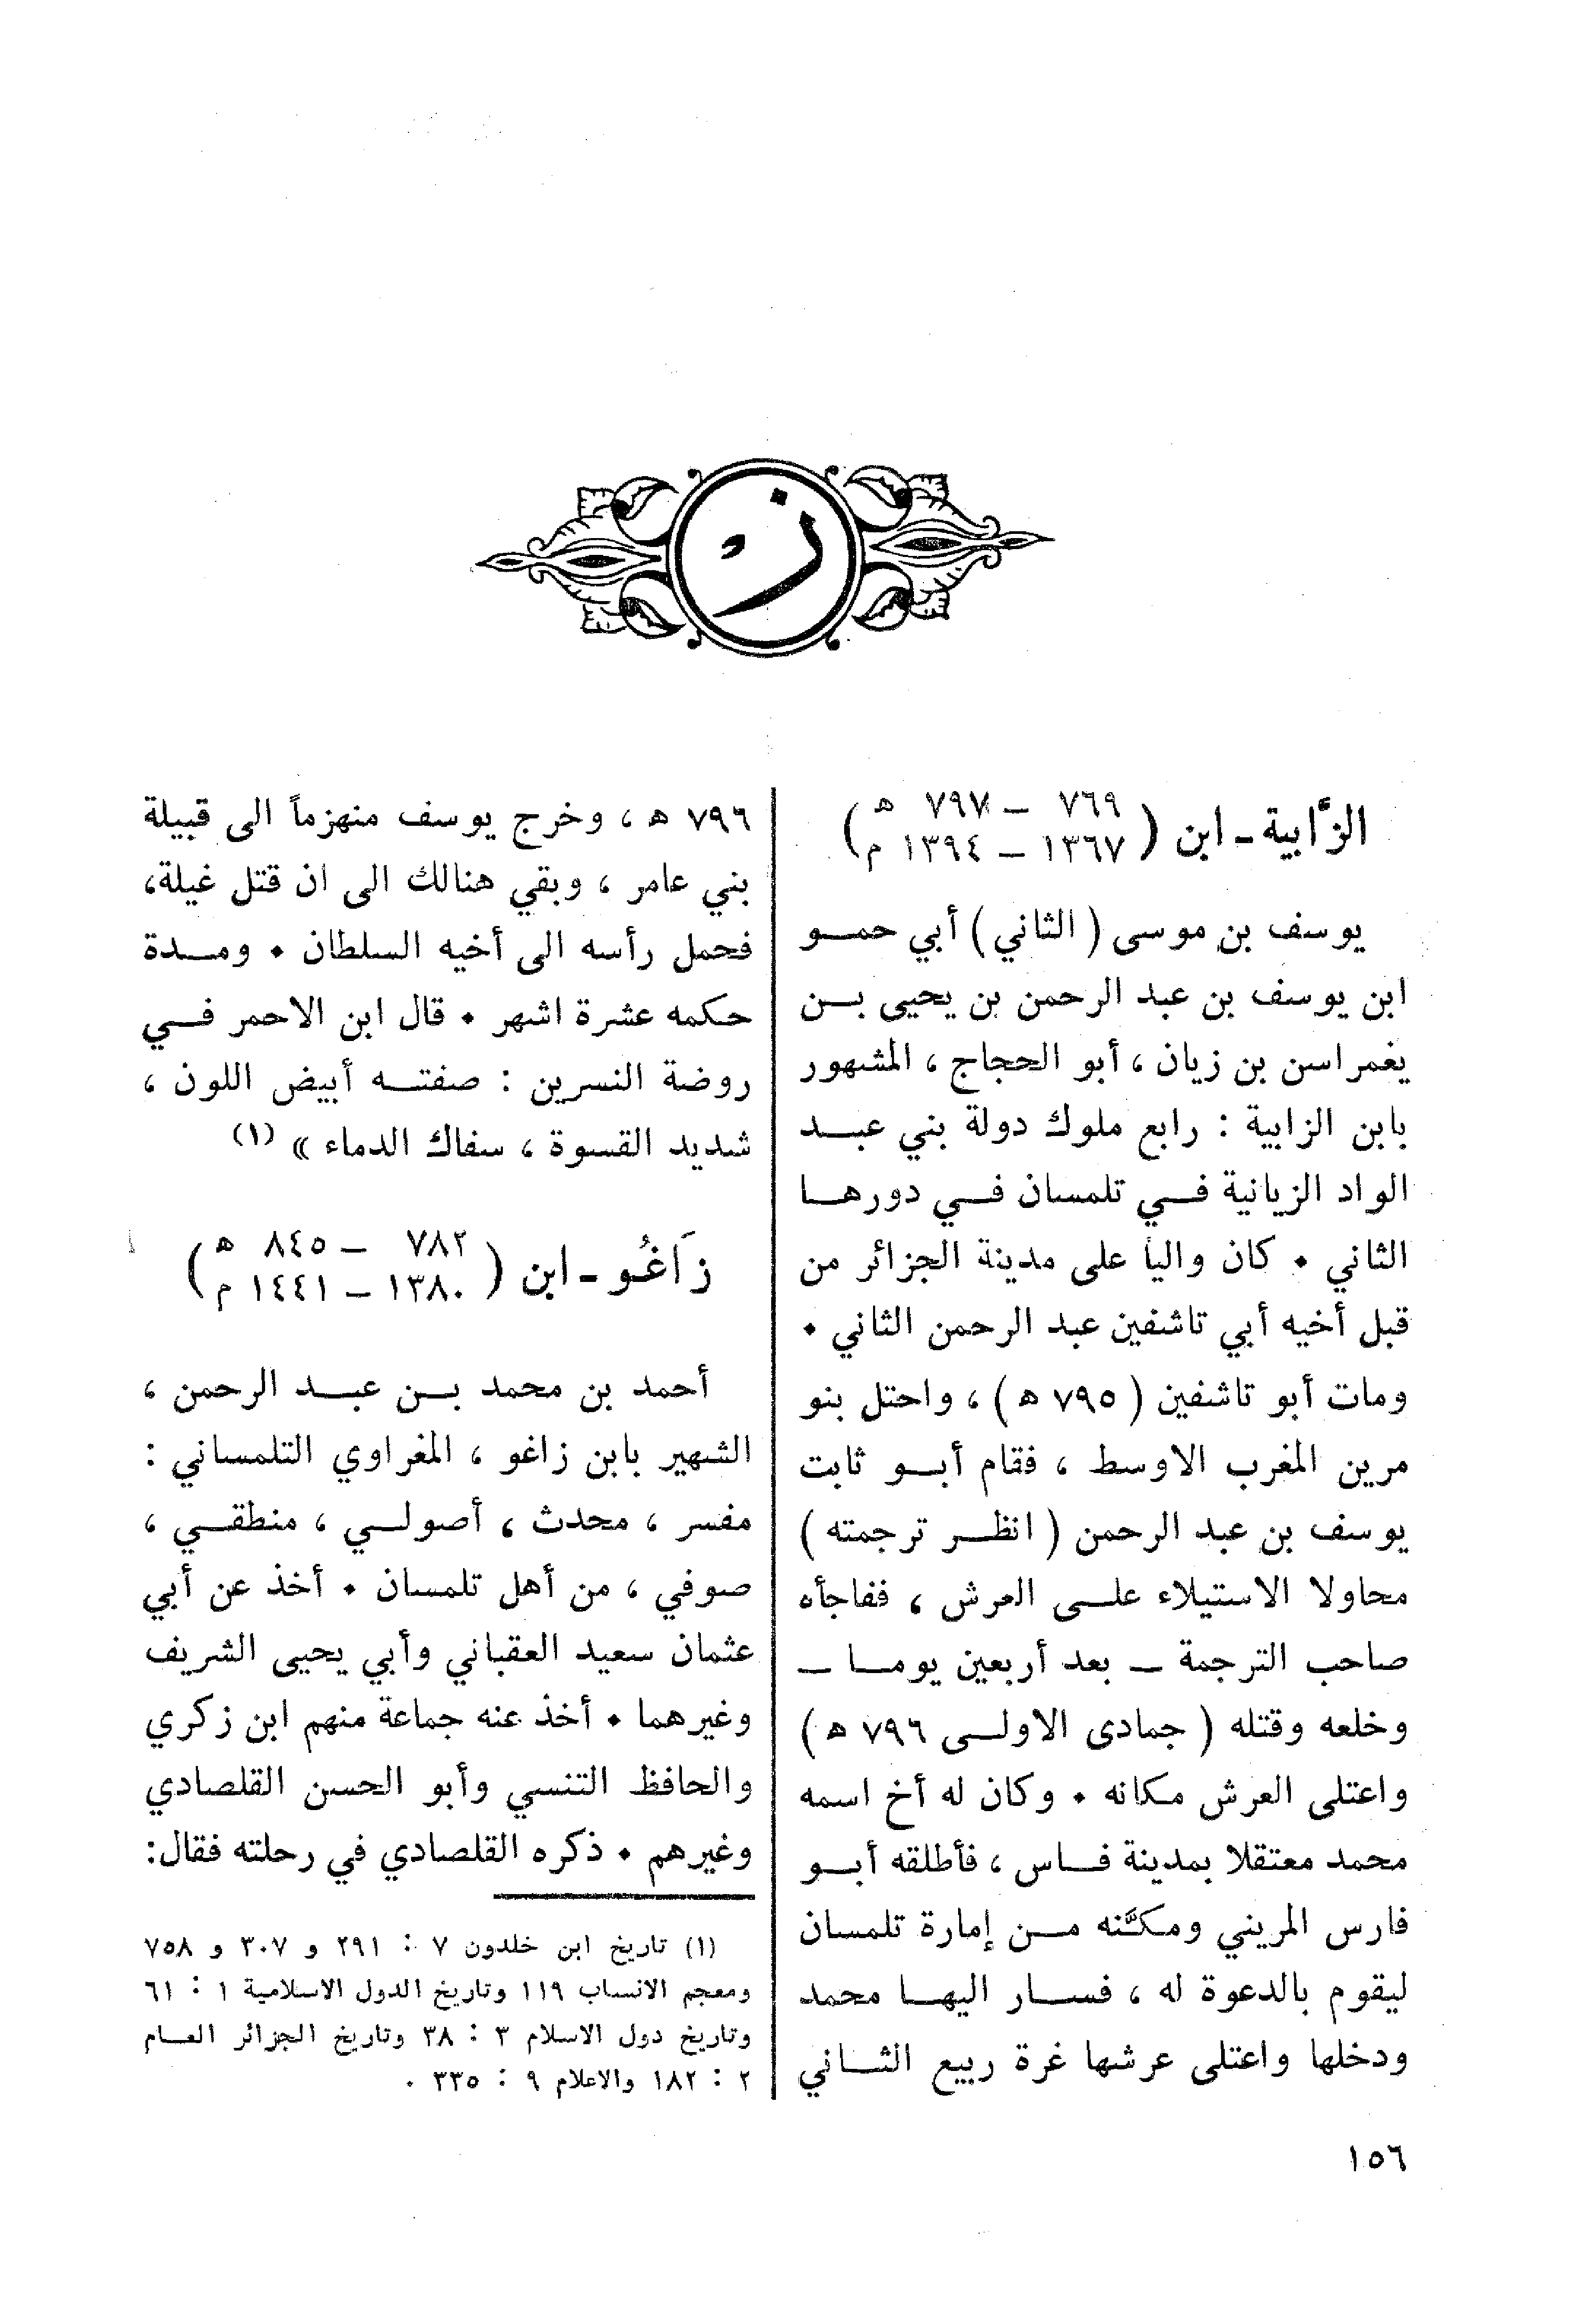 ز
الزَّابية - ابن ( ٧٦٩ - ٧٩٧ هـ
١٣٦٧ - ١٣٩٤ م )
يوسف بن موسى ( الثاني ) أبي حمو
ابن يوسف بن عبد الرحمن بن يحيى بن
يغمراسن بن زيان ، أبو الحجاج ، المشهور
بابن الزابية : رابع ملوك دولة بني عبد
الواد الزيانية في تلمسان في دورها
الثاني . كان واليا على مدينة الجزائر من
قبل أخيه أبي تاشفين عبد الرحمن الثاني .
ومات أبو تاشفين ( ٧٩٥ هـ ) ، واحتل بنو
مرين المغرب الاوسط ، فقام أبو ثابت
يوسف بن عبد الرحمن ( انظر ترجمته )
محاولا الاستيلاء على العرش ، ففاجأه
صاحب الترجمة - بعد أربعين يوما -
وخلعه وقتله ( جمادى الاولى ٧٩٦ هـ )
واعتلى العرش مكانه . وكان له أخ اسمه
محمد معتقلا بمدينة فاس ، فأطلقه أبو
فارس المريني ومكَّنه من إمارة تلمسان
ليقوم بالدعوة له ، فسار اليها محمد
ودخلها واعتلى عرشها غرة ربيع الثاني
٧٩٦ هـ ، وخرج يوسف منهزماً الى قبيلة
بني عامر ، وبقي هنالك الى ان قتل غيلة،
فحمل رأسه الى أخيه السلطان . ومدة
حكمه عشرة اشهر . قال ابن الاحمر في
روضة النسرين : صفته أبيض اللون ،
شديد القسوة ، سفاك الدماء » (١)
زَاغُو - ابن ( ٧٨٢ - ٨٤٥ هـ
١٣٨٠ - ١٤٤١ م )
أحمد بن محمد بن عبد الرحمن ،
الشهير بابن زاغو ، المغراوي التلمساني :
مفسر ، محدث ، أصولي ، منطقي ،
صوفي ، من أهل تلمسان . أخذ عن أبي
عثمان سعيد العقباني وأبي يحيى الشريف
وغيرهما . أخذ عنه جماعة منهم ابن زكري
والحافظ التنسي وأبو الحسن القلصادي
وغيرهم . ذكره القلصادي في رحلته فقال:
(١) تاريخ ابن خلدون ٧ : ٢٩١ و ٣٠٧ و ٧٥٨
ومعجم الانساب ١١٩ وتاريخ الدول الاسلامية ١ : ٦١
وتاريخ دول الاسلام ٣ : ٣٨ وتاريخ الجزائر العام
٢ : ١٨٢ والاعلام ٩ : ٣٣٥ .
١٥٦